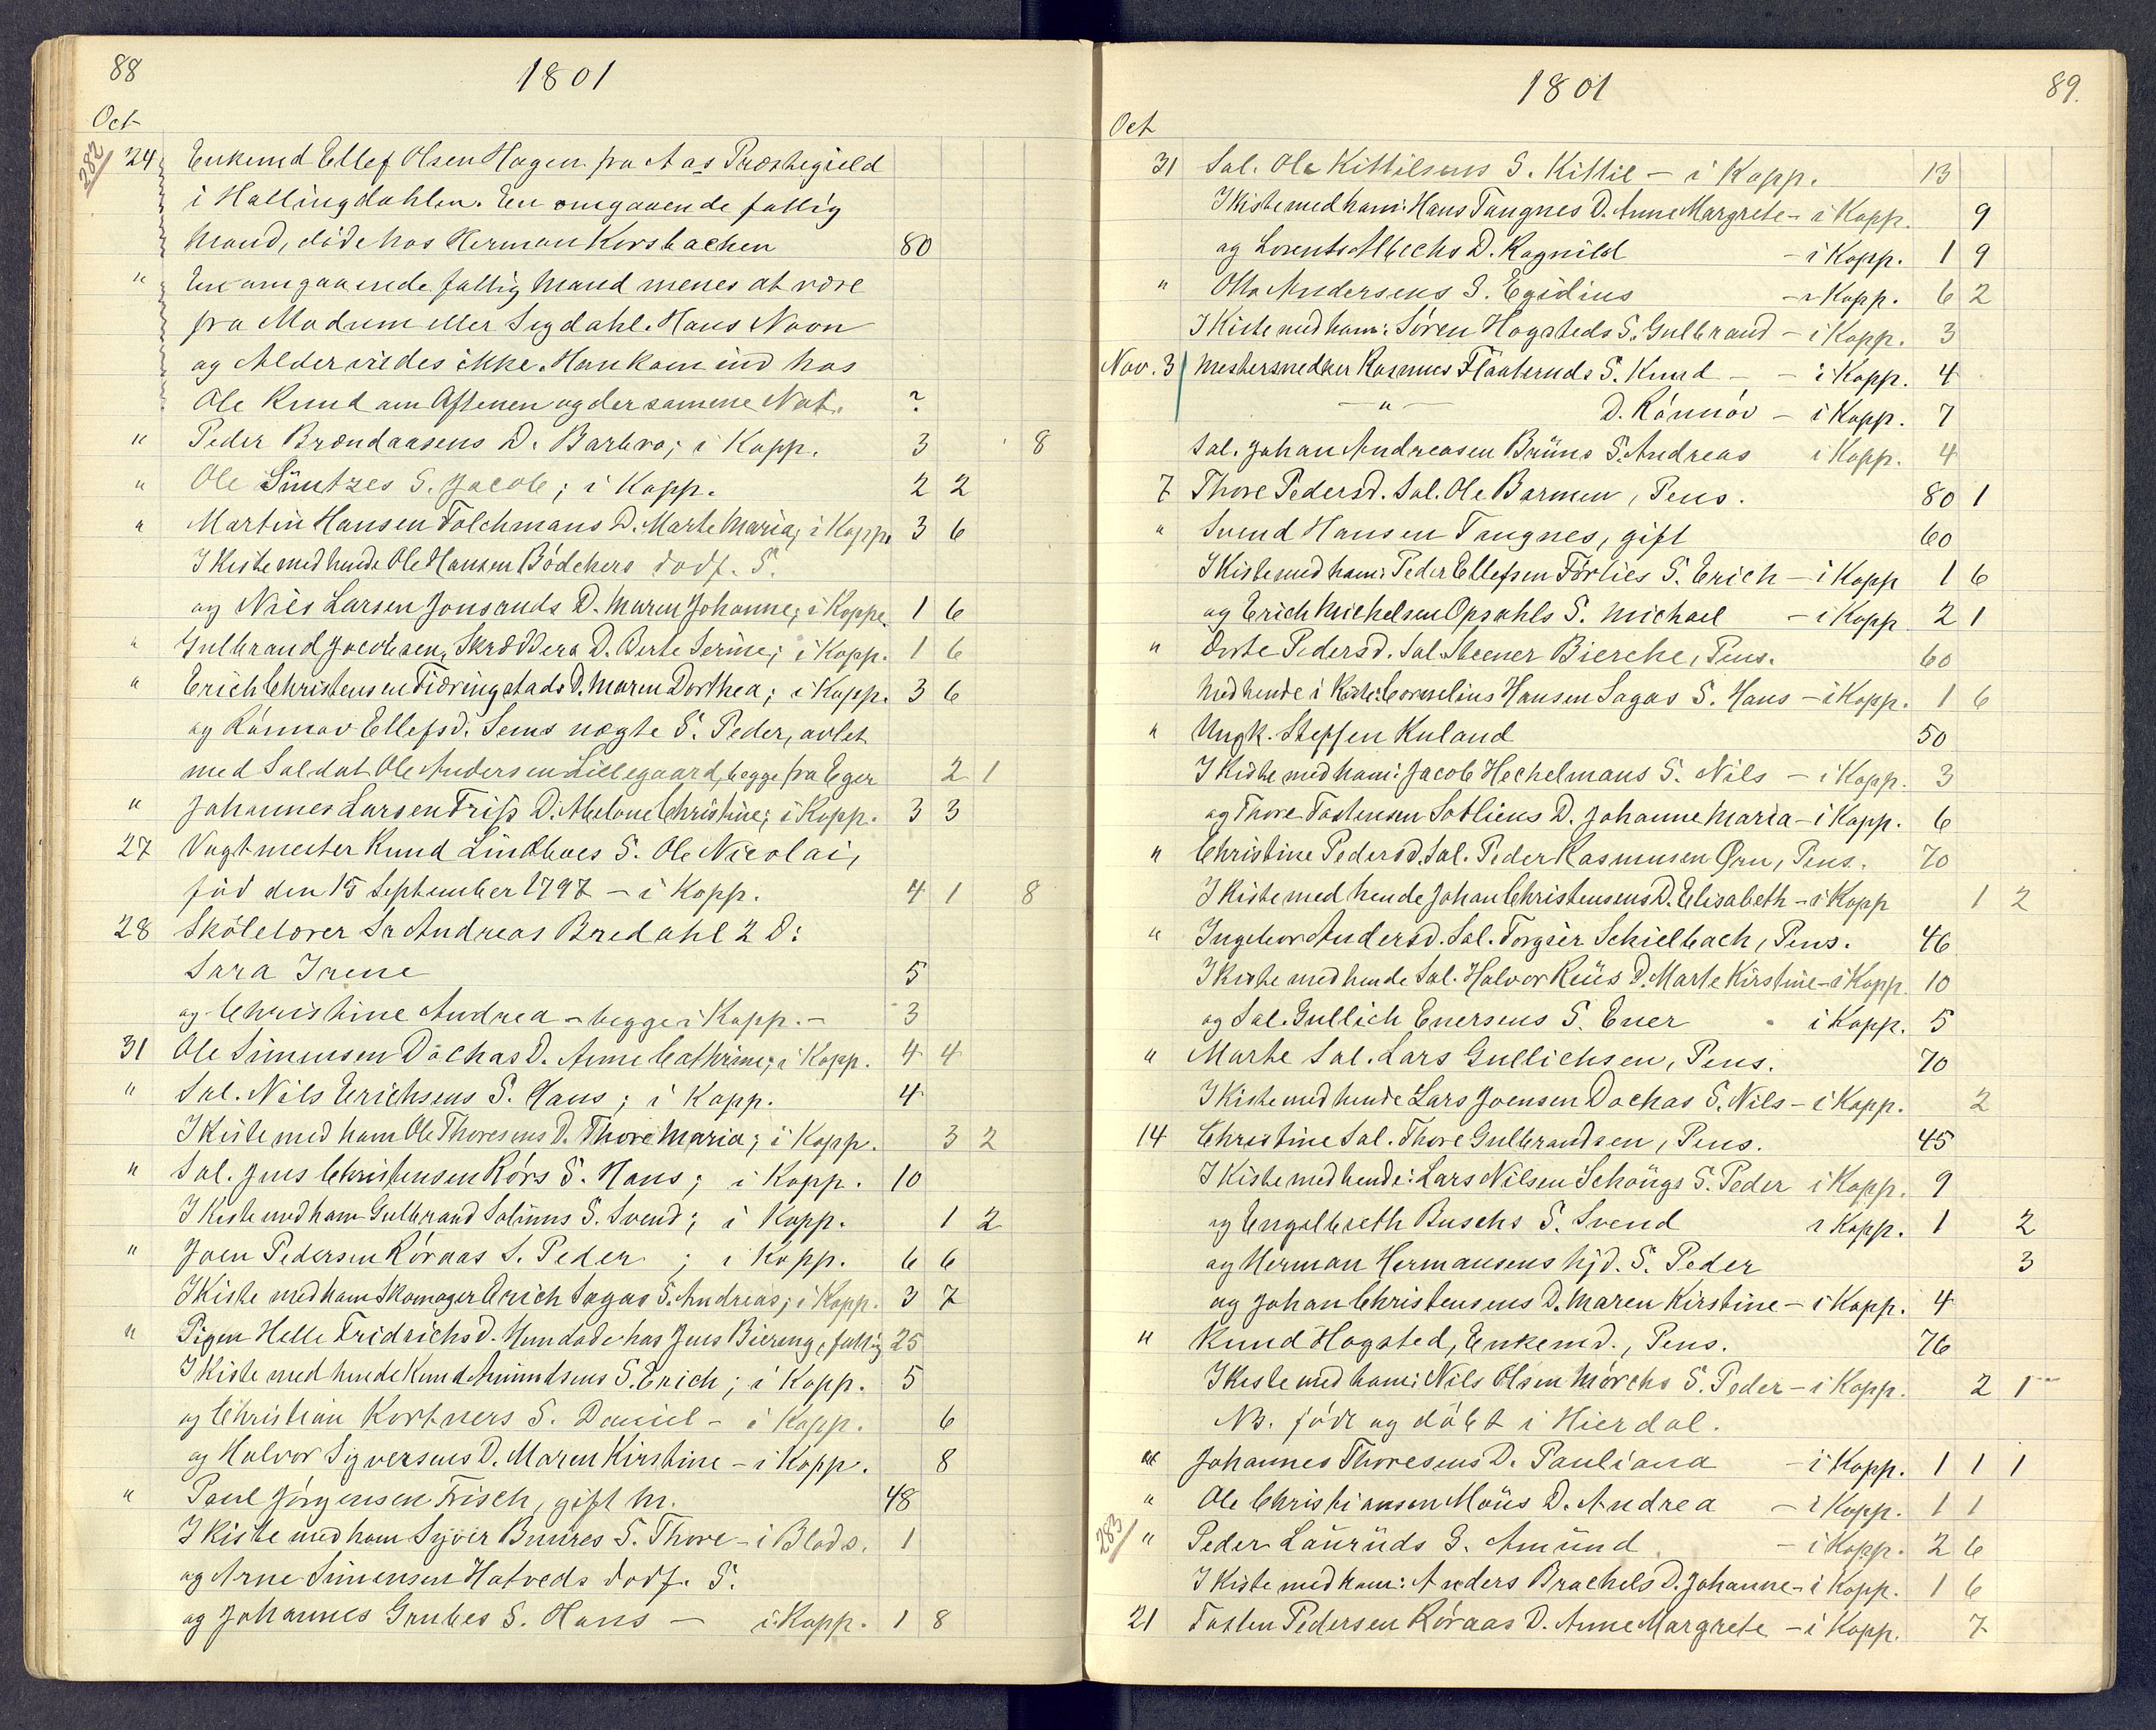 88
1801
Oct
282
24 Enkemd Ellef Olsen Hagen fra Aas Præstegield
i Hallingdahlen. En omgaaende fattig
Mand, döde hos Herman Korsbachen 80
" En omgaaende fattig Mand menes at være
fra Modum eller Sigdahl. Hans Navn
og Alder vides ikke. Han kom ind hos
Ole Rund om Aftenen og der samme Nat. ?
" Peder Brændaasens D. Barbro; i Kopp. 3 8
" Ole Süntzes S. Jacob; i Kopp. 2 2
" Martin Hansen Tolchmans D. Marte Maria; i Kopp. 3 6
I Kiste med hende Ole Hansen Bödchers dodf. S.
og Niels Larsen Jonsruds D. Maren Johanne; i Koppe. 1 6
" Gulbrand Jacobsen Skrædders D. Berte Serine; i Kopp. 1 6
" Erich Christensen Fieringstads D. Maren Dorthea; i Kopp. 3 6
og Rönnov Ellefsd. Sems uægte S. Peder, avlet
med Soldat Ole Andersen Lillegaard, begge fra Eger 2 1
" Johannes Larsen Friss D. Abelone Christine; i Kopp. 3 3
27 Vagtmester Knud Lindboes S. Ole Nicolai,
föd den 15 September 1797 – i Kopp. 4 1 8
28 Skölelærer Sr Andreas Bredahl 2 D:
Sara Irene 5
og Christine Andrea – begge i Kopp. – 3
31 Ole Simensen Dochas D. Anne Cathrine; i Kopp. 4 4
" Sal. Nils Erichsens S. Hans; i Kopp. 4
I Kiste med ham Ole Thoresens D. Thore Maria; i Kopp. 3 2
" Sal. Jens Christensen Rörs S. Hans; i Kopp. 10
I Kiste med ham Gulbrand Solums S. Svend; i Kopp. 1 2
" Joen Pedersen Röraas S. Peder; i Kopp. 6 6
I Kiste med ham Skomager Erich Sagas S. Andreas; i Kopp. 3 7
" Pigen Helle Fridrichsd. Hun döde hos Jens Biering, fattig 25
I Kiste med hende Knud Amundsens S. Erich; i Kopp. 5
og Christian Kortners S. Daniel – i Kopp. 6
og Halvor Syversens D. Maren Kirstine – i Kopp. 8
" Poul Jörgensen Frisch, gift M. 48
I Kiste med ham Syver Buures S. Thore – i Blods. 1
og Arne Simensen Hotveds dodf. S.
og Johannes Grubes S. Hans – i Kopp. 1 8
1801
89.
Oct
31 Sal. Ole Kittilsens S. Kittil – i Kopp. 13
I Kiste med ham: Hans Tangnes D. Anne Margrete – i Kopp. 9
og Lorents Albechs D. Ragnild – i Kopp. 1 9
" Otto Andersens S. Egidius – i Kopp. 6 2
I Kiste med ham: Sören Hogsteds S. Gulbrand – i Kopp. 3
Nov. 3 Mestersnedker Rasmus Flaateruds S. Knud – – i Kopp. 4
– " – D. Rönnöv – i Kopp. 7
Sal. Johan Andreasen Brüns S. Andreas i Kopp. 4
7 Thore Pedersd. Sal. Ole Barmen, Pens. 80 1
" Svend Hansen Tangnes, gift 60
I Kiste med ham: Peder Ellefsen Förlies S. Erich – i Kopp 1 6
og Erich Michelsen Opsahls S. Michael – i Kopp 2 1
" Dorte Pedersd. Sal. Steener Bierche, Pens. 60
Med hende i Kiste: Cornelius Hansen Sagas S. Hans – i Kopp. 1 6
" Ungk. Steffen Ruland 50
I Kiste med ham: Jacob Hechelmans S. Nils – i Kopp. 3
og Thore Tostensen Sotliens D. Johanne Maria – i Kopp. 6
" Christine Pedersd. Sal. Peder Rasmusen Ørn, Pens. 70
I Kiste med hende Johan Christensens D. Elisabeth – i Kopp 1 2
" Ingebor Andersd. Sal. Torgier Schielbach, Pens. 46
I Kiste med hende Sal. Halvor Ruüs D. Marte Kirstine – i Kopp. 10
og Sal. Gullich Enersens S. Ener i Kopp. 5
" Marte Sal. Lars Gullichsen, Pens. 70
I Kiste med hende Lars Joensen Dochas S. Nils – i Kopp. 2
14 Christine Sal. Thore Gulbrandsen, Pens. 45
I Kiste med hende: Lars Nilsen Schöugs S. Peder i Kopp. 9
og Engelbreth Buschs S. Svend i Kopp. 1 2
og Herman Hermansens hjd. S. Peder 3
og Johan Christensens D. Maren Kirstine – i Kopp. 4
" Knud Hogsted, Enkemd., Pens. 76
I Kiste med ham: Nils Olsen Mörchs S. Peder – i Kopp. 2 1
NB. född og döbt i Hierdal.
" Johannes Thoresens D. Pauliana – i Kopp. 1 1 1
" Ole Christiansen Moüs D. Andrea – i Kopp. 1 1
283
" Peder Lauruds S. Amünd – i Kopp. 2 6
I Kiste med ham: Anders Brachels D. Johanne – i Kopp. 1 6
21 Tosten Pedersen Röraas D. Anne Margrete – i Kopp. 7